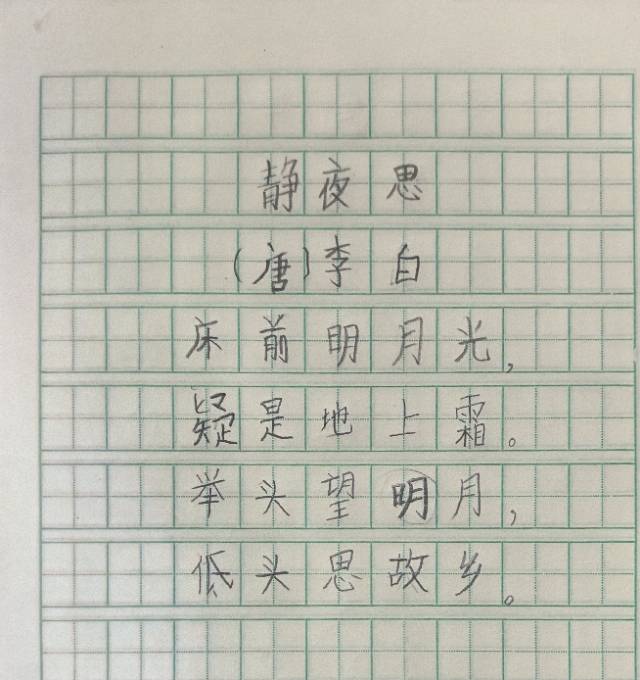 静夜思
(唐)李白
床前明月光,
疑是地上霜。
举头望明月,
低头思故乡。